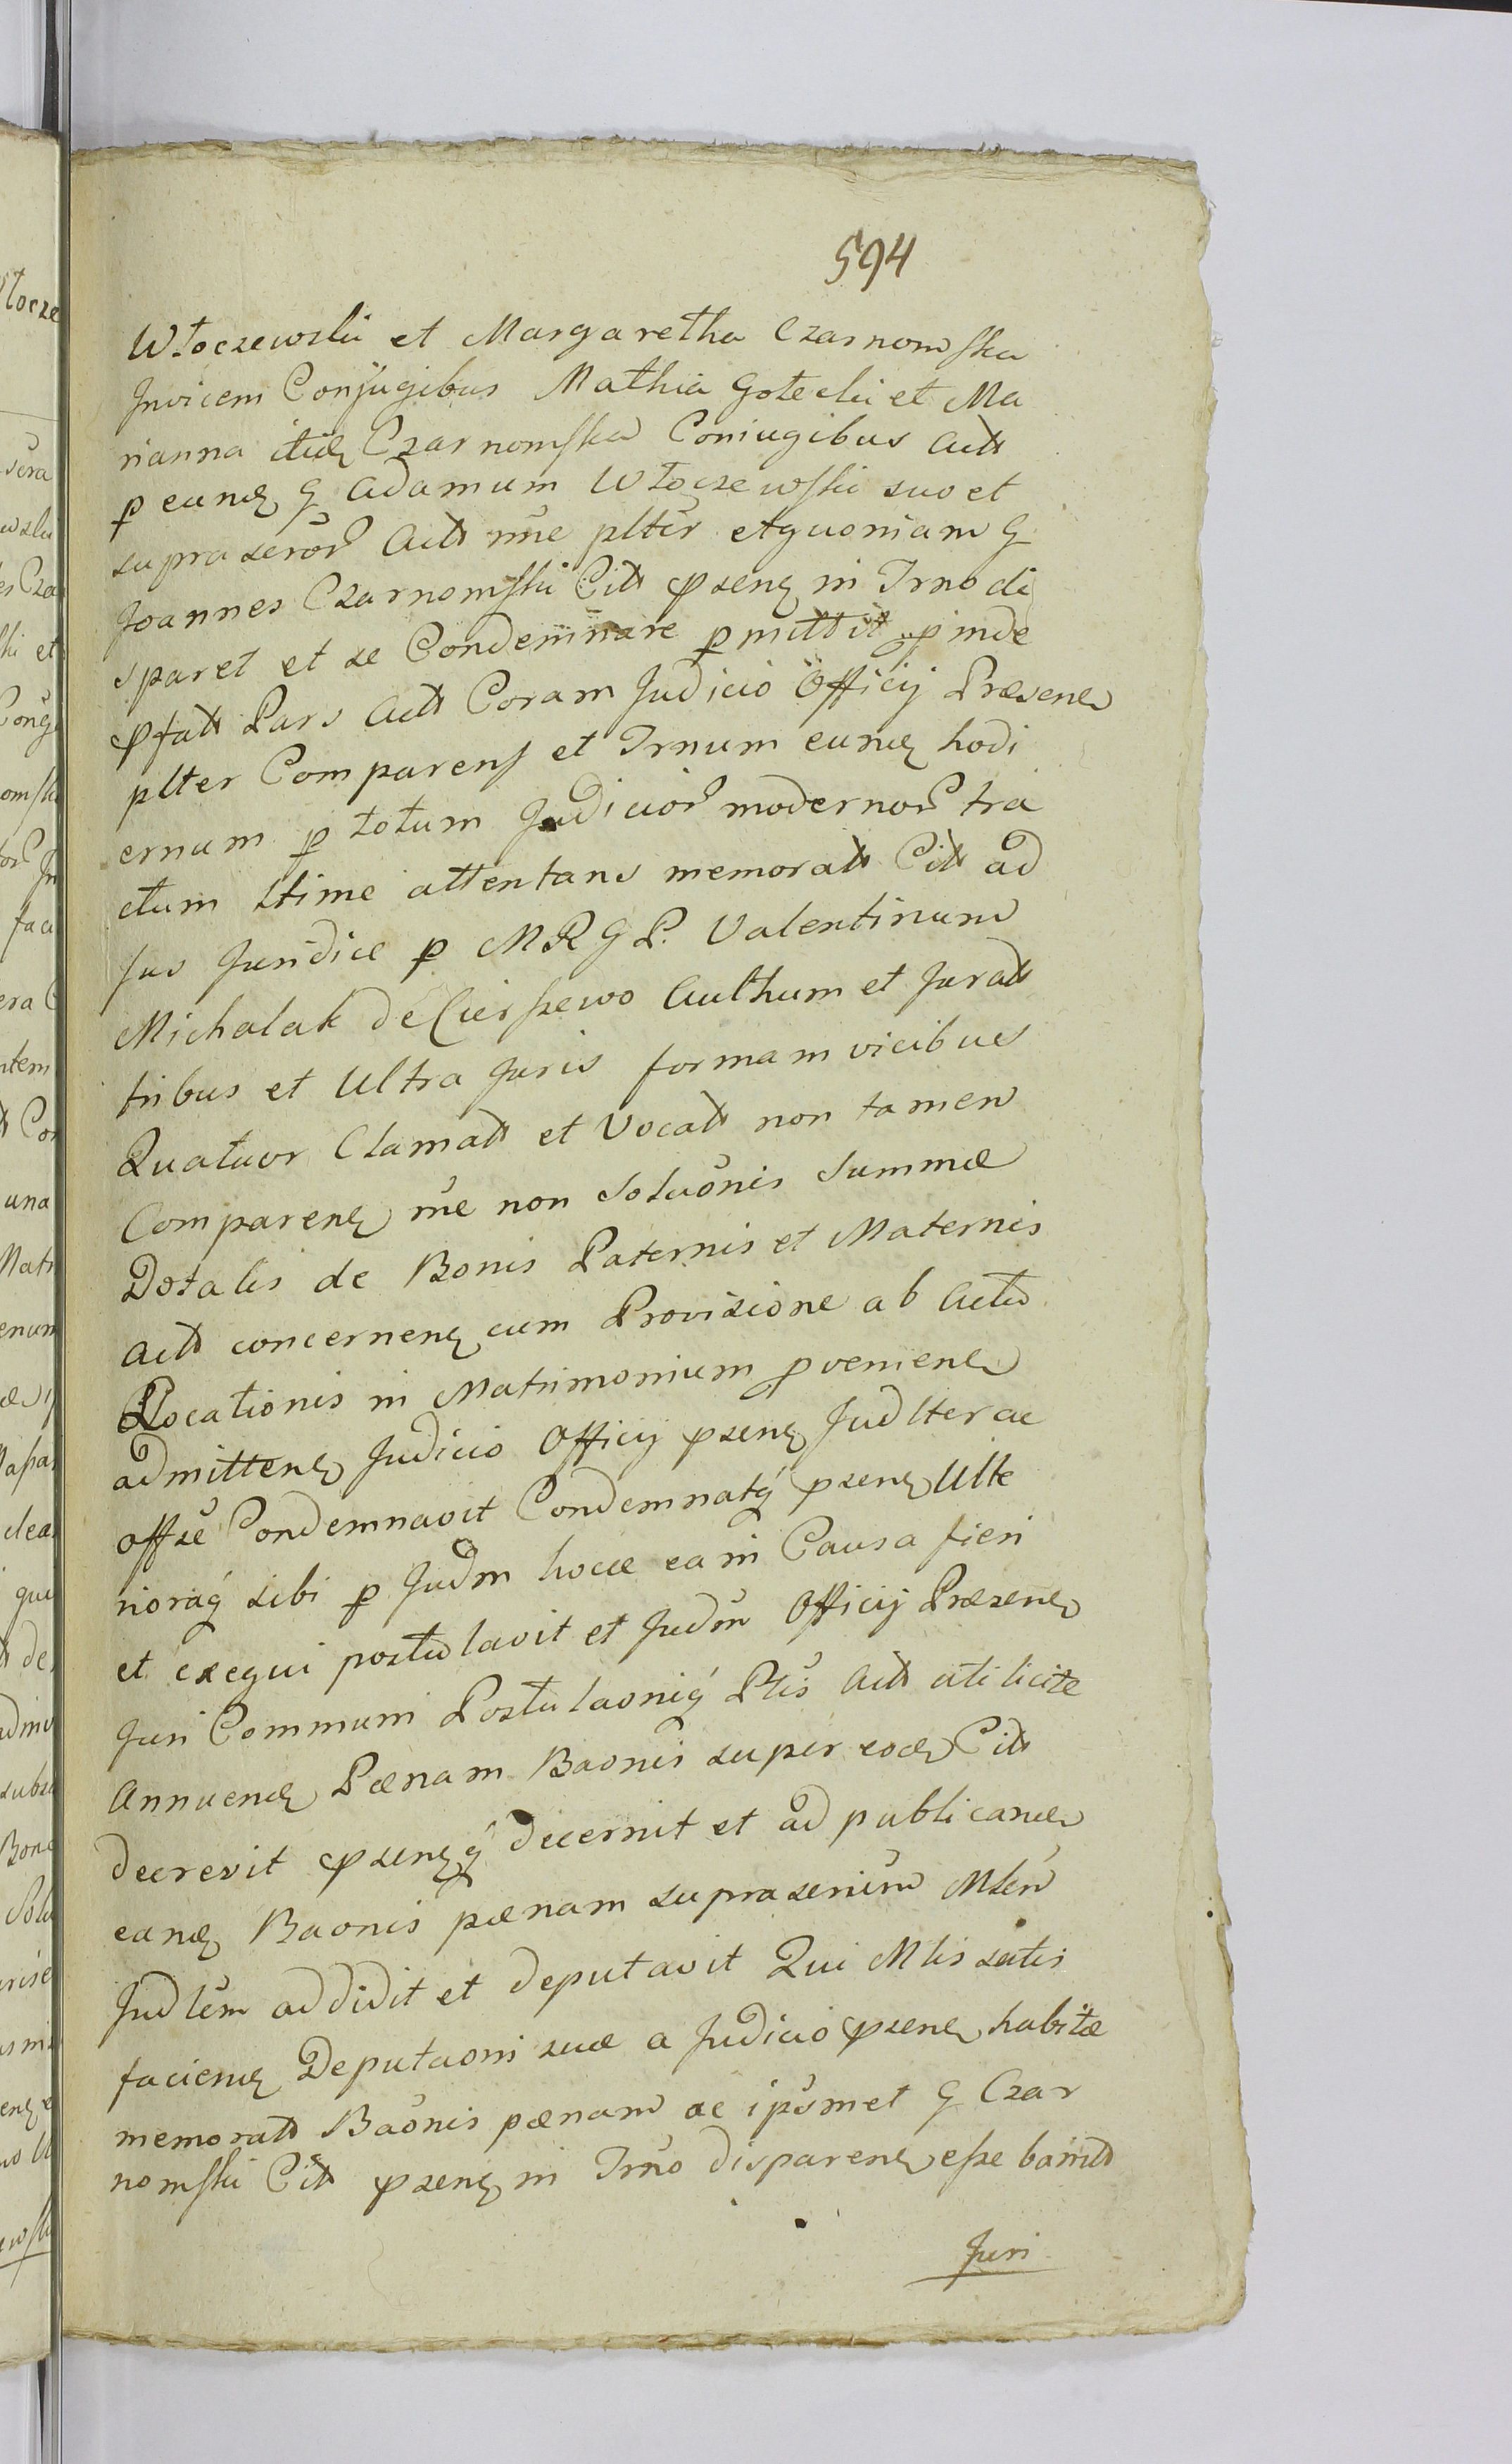 594
Włoczewski et Margaretha Czarnomska
Invicem Conjugibus Mathia Gołecki et Ma
rianna itid Czarnomska Coniugibus Actt
p eund G Adamum Włoczewski suo et
suprascror Actt nne plter et quoniam G
Joannes Czarnomski Citt psens in Trno di
sparet et se Condemnare pmittit pinde
pfatt Pars Actt Coram Judicio Officij Præsens
plter Comparens et Trnum eund hodi
ernum p totum Judicior modernor tra
ctum ltime attentans memoratt Citt ad
Jus Juridice p M R G P. Valentinum
Michalak de Cierszewo Aulthum et Juratt
tribus et Ultra Juris formam vicibus
Quatuor Clamatt et Vocatt non tamen
Comparens rne non Soluonis Summæ
Dotalis de Bonis Paternis et Maternis
Actt concernens cum Provisione ab Actu
Elocationis in Matrimonium proveniens
admittens Judicio Officij psens Judlter ac
offse Condemnavit Condemnatq psens Ulte
rioraq sibi p Judm hocce ea in Causa fieri
et exequi postulavit et Judm Officij Præsens
Juri Communi Postulaoniq Ptis Actt uti licite
Annuend Pænam Baonis super eod Citt
decrevit psensq decernit et ad publicand
eand Baonis pænam suprascrium Mlem
Judlem addidit et deputavit Qui Mlis satis
faciend Deputaoni suæ a Judicio psens habitæ
memoratt Baonis pænam ac ipsmet G Czar
nomski Citt psens in Trno disparens esse bannitt
Juri